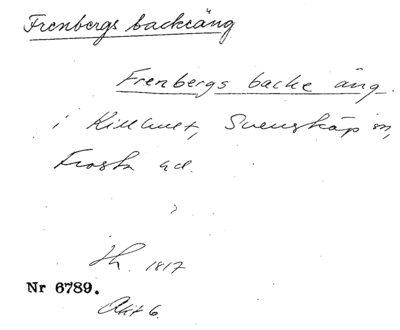 Frenbergs backeäng
Frenbergs backe äng.
i Killhult, Svensköp sn,
Frosta hd.
Jh. 1817
Nr 6789.
Akt 6.